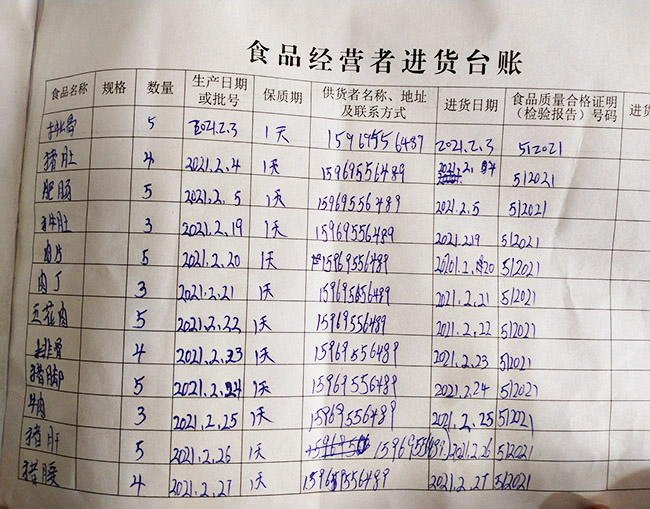 食品经营者进货台账
食品名称 规格 数量 生产日期或批号 保质期 供货者名称、地址及联系方式 进货日期 食品质量合格证明(检验报告)号码 进货
排骨 5 2021.2.3 1天 15969556489 2021.2.3 512021
猪肚 4 2021.2.4 1天 15969556489 2021.2.4 512021
肥肠 5 2021.2.5 1天 15969556489 2021.2.5 512021
牛肚 3 2021.2.19 1天 15969556489 2021.2.19 512021
肉片 5 2021.2.20 1天 15969556489 2021.2.20 512021
肉丁 3 2021.2.21 1天 15969556489 2021.2.21 512021
五花肉 5 2021.2.22 1天 15969556489 2021.2.22 512021
排骨 4 2021.2.23 1天 15969556489 2021.2.23 512021
猪脚 5 2021.2.24 1天 15969556489 2021.2.24 512021
牛肉 3 2021.2.25 1天 15969556489 2021.2.25 512021
猪肝 5 2021.2.26 1天 15969556489 2021.2.26 512021
猪腰 4 2021.2.27 1天 15969556489 2021.2.27 512021